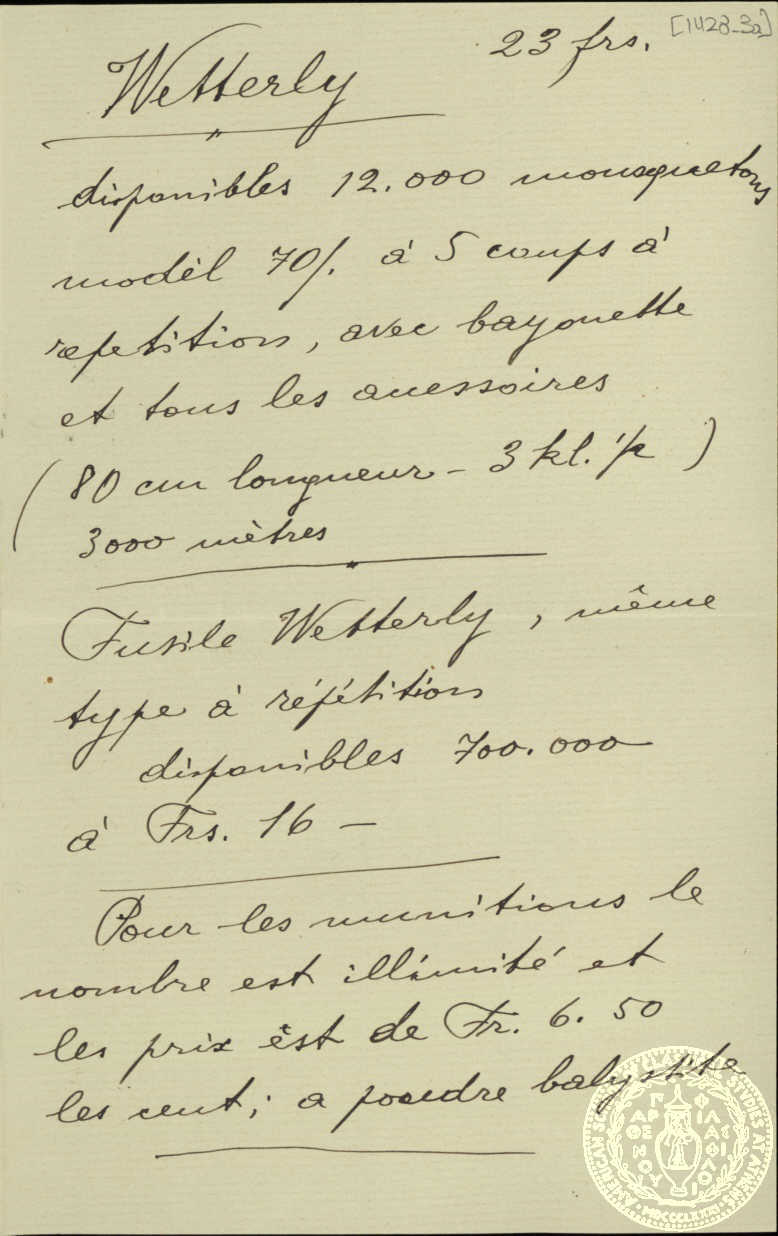 [1428_3a]
23 frs.
Wetterly
disponibles 12.000 mousquetons
modèl 70/. à 5 coups à
repetition, avec bayonette
et tous les acessoires
(80 cm longueur - 3 kl. 1/2)
3000 mètres
Fusile Wetterly, même
type à répétition
disponibles 700.000
à Frs. 16 —
Pour les munitions le
nombre est illimité et
les prix est de Fr. 6.50
les cent; a poudre balystite
AMERICAN SCHOOL OF CLASSICAL STUDIES AT ATHENS
MDCCCLXXXI